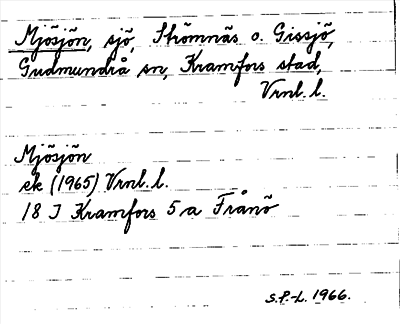 Mjösjön, sjö, Strömnäs o. Gissjö,
Gudmundrå sn, Kramfors stad,
Vrnl. l.
Mjösjön
ek (1965) Vrnl. l.
18 I Kramfors 5 a Frånö
S.P.-L. 1966.